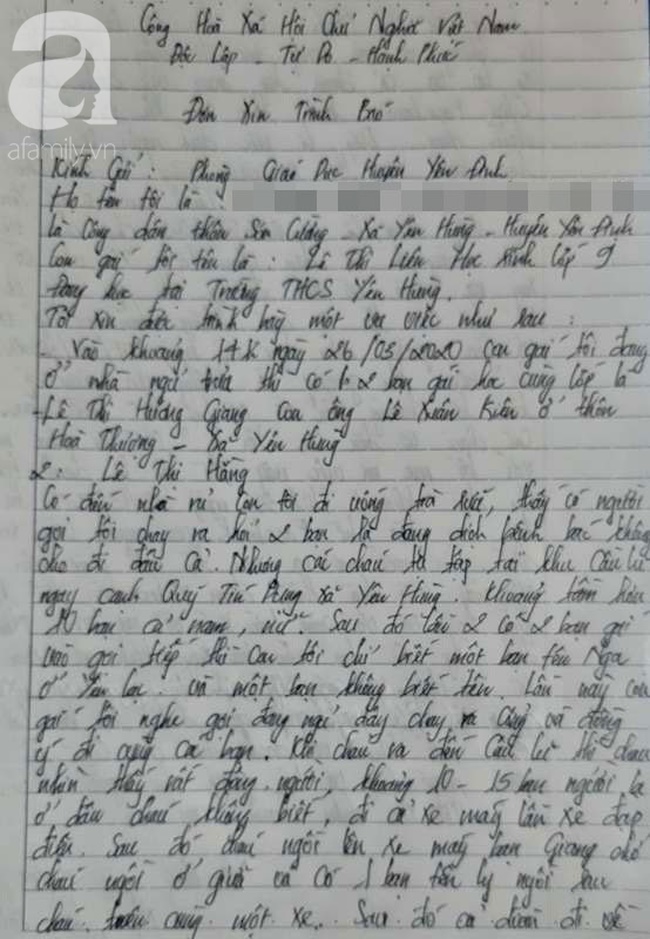 Cộng Hoà Xã Hội Chủ Nghĩa Việt Nam
Độc Lập - Tự Do - Hạnh Phúc
Đơn Xin Trình Báo
a
afamily.vn
Kính Gửi : Phòng Giáo Dục Huyện Yên Định
Họ tên tôi là :
Là Công dân thôn Sơn Cường - Xã Yên Hùng - Huyện Yên Định
Con gái tôi tên là : Lê Thị Liên Học sinh lớp 9
Đang học tại Trường THCS Yên Hùng.
Tôi xin được trình bày một vụ việc như sau :
- Vào khoảng 14h ngày 26/03/2020 con gái tôi đang
ở nhà ngủ trưa thì có 2 bạn gái học cùng lớp là
- Lê Thị Hương Giang con ông Lê Xuân Kiên ở thôn
Hoà Thượng - Xã Yên Hùng
2: Lê Thị Hằng
Có đến nhà rủ con tôi đi uống trà sữa, thấy có người
gọi tôi chạy ra hỏi 2 bạn là đang dịch bệnh bác không
cho đi đâu cả. Nhưng các cháu tụ tập tại khu cầu lừ
ngay cạnh Quỹ Tín Dụng xã Yên Hùng. Khoảng tầm hơn
10 bạn cả nam, nữ. Sau đó lần 2 có 2 bạn gái
vào gọi tiếp thì con tôi chỉ biết một bạn tên Nga
ở Yên Lạc. và một bạn không biết tên. Lần này con
gái tôi nghe gọi đang ngủ dậy chạy ra cổng và đồng
ý đi cùng các bạn. Khi cháu ra đến Cầu lừ thì cháu
nhìn thấy rất đông người, khoảng 10 - 15 bạn người lạ
ở đâu cháu không biết, đi cả xe máy lẫn xe đạp
điện. Sau đó cháu ngồi lên xe máy bạn Giang chở
cháu ngồi ở giữa và có 1 bạn tên Ly ngồi sau
cháu. trên cùng một xe. Sau đó cả đoàn đi về